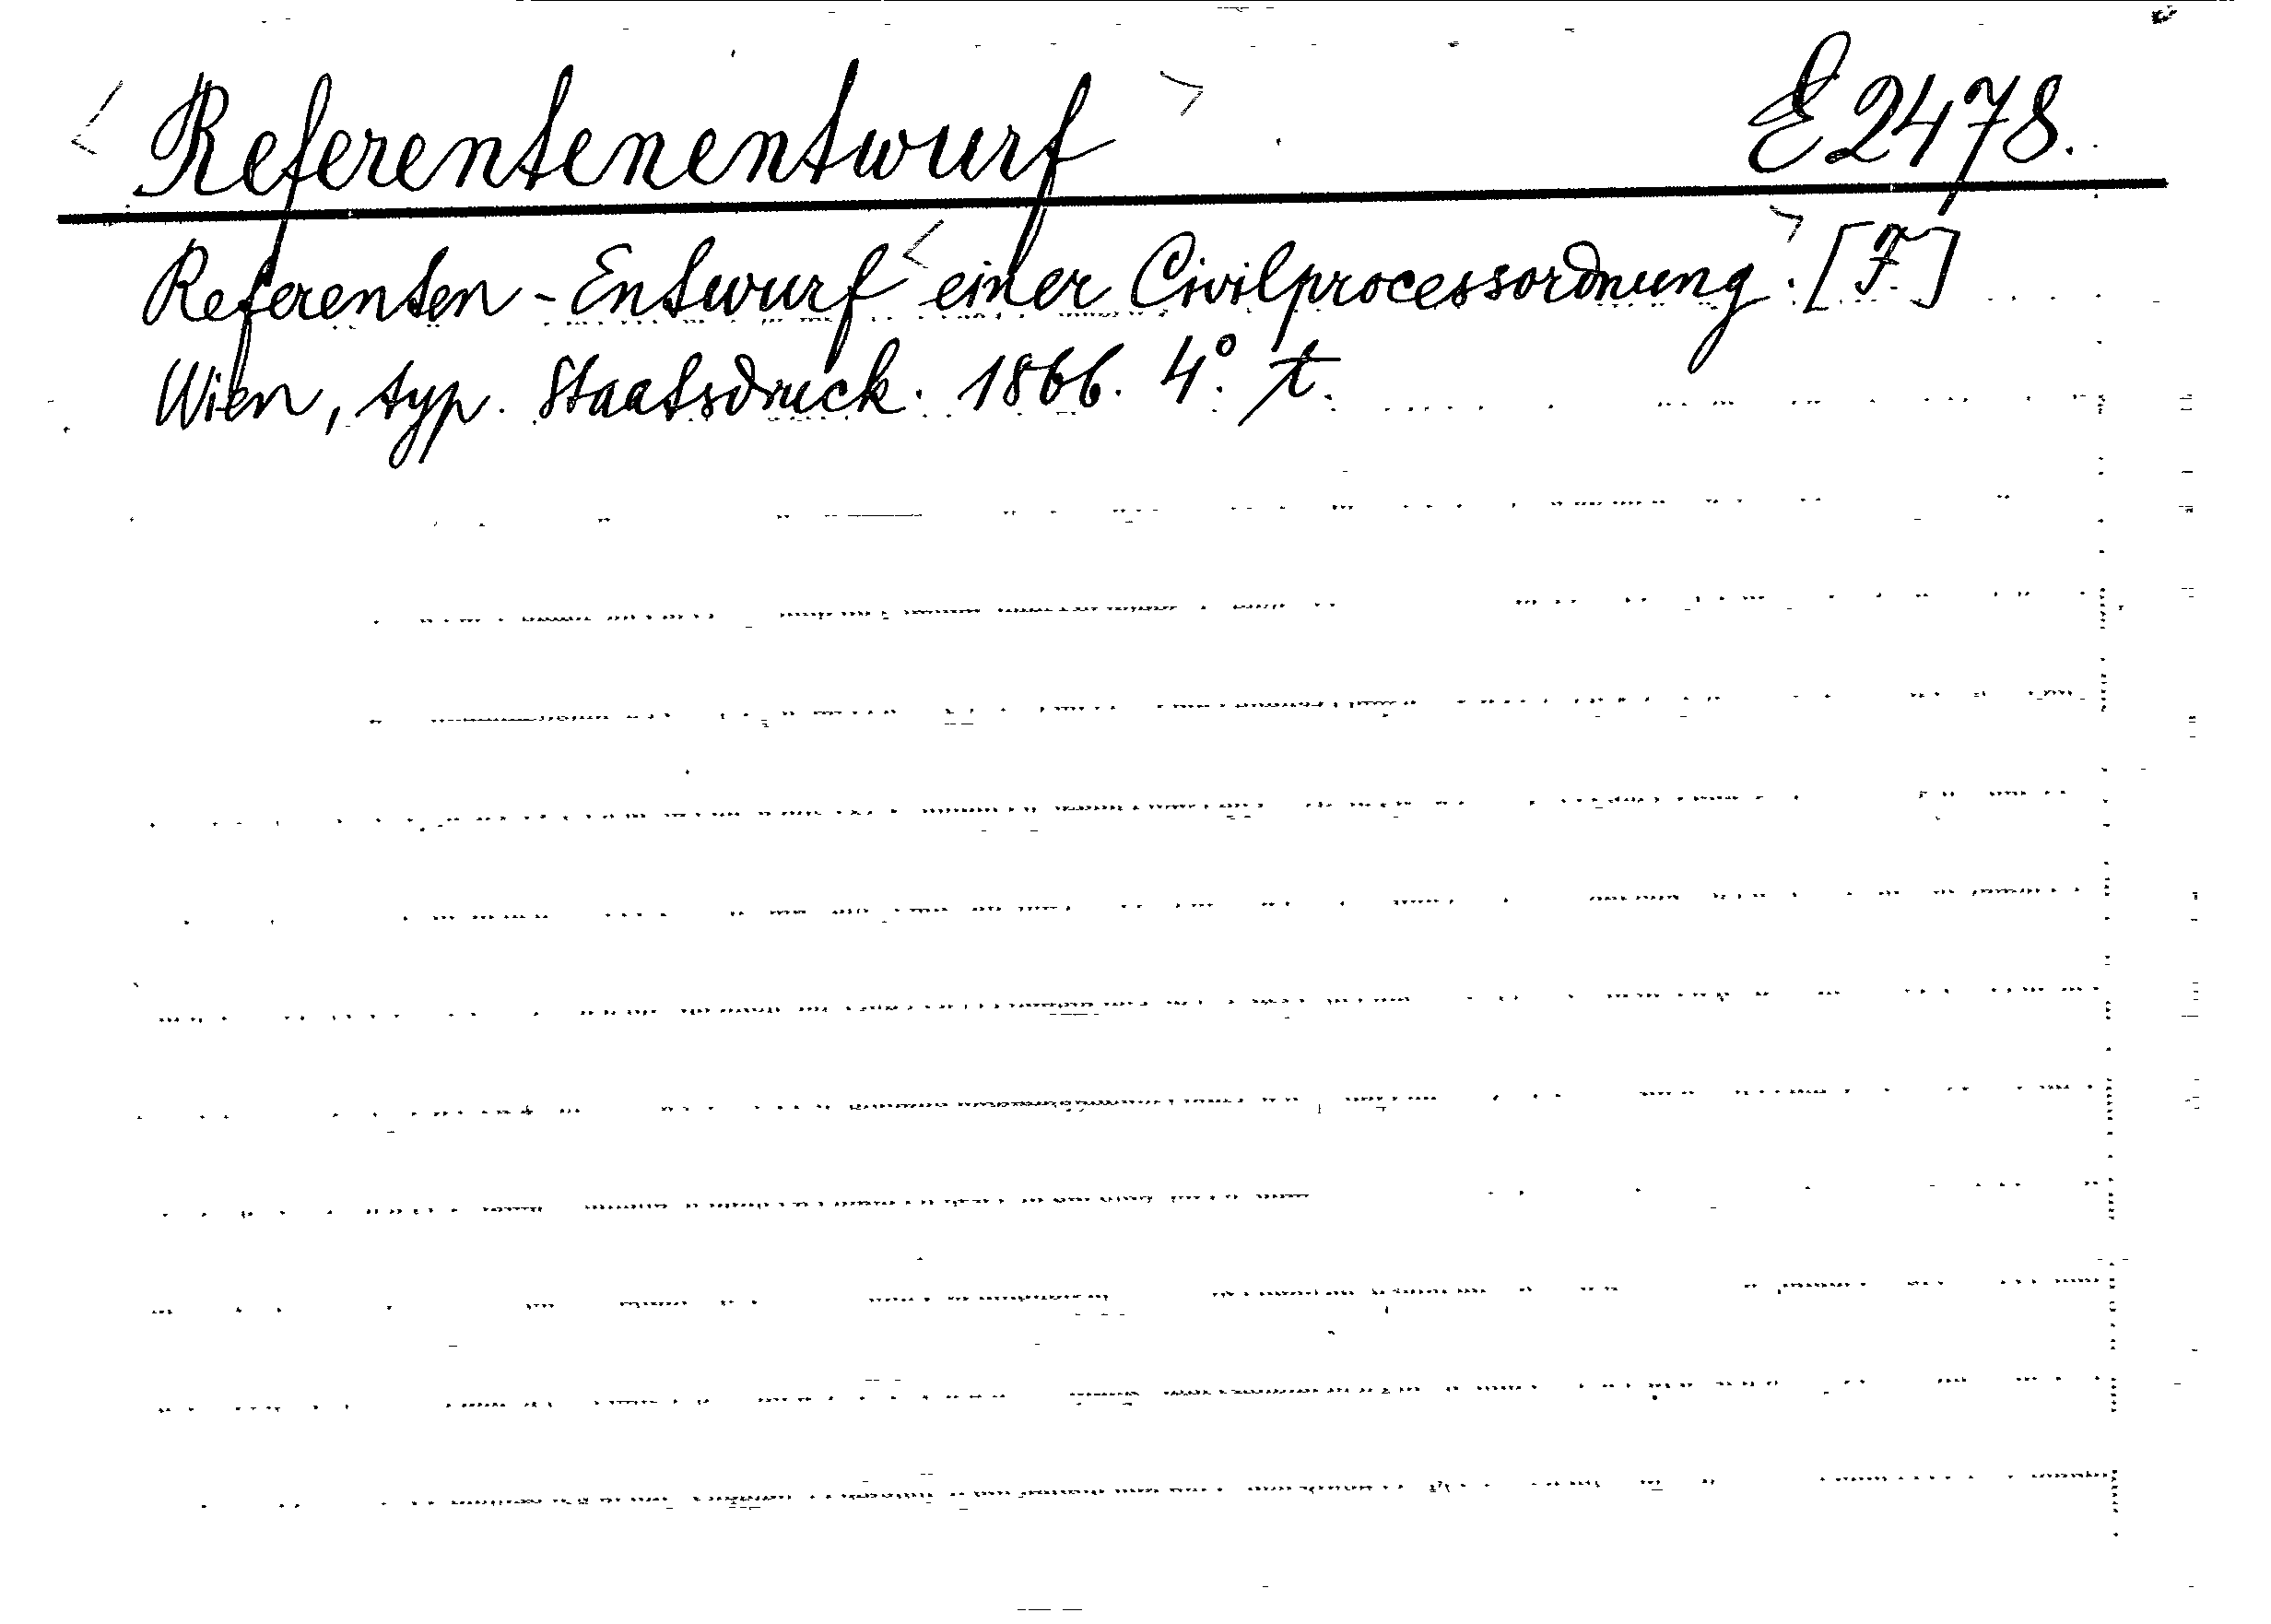 < Referentenentwurf > E 2478.
Referenten-Entwurf < einer Civilprocessordnung >. [F]
Wien, typ. Staatsdruck. 1866. 4°. t.